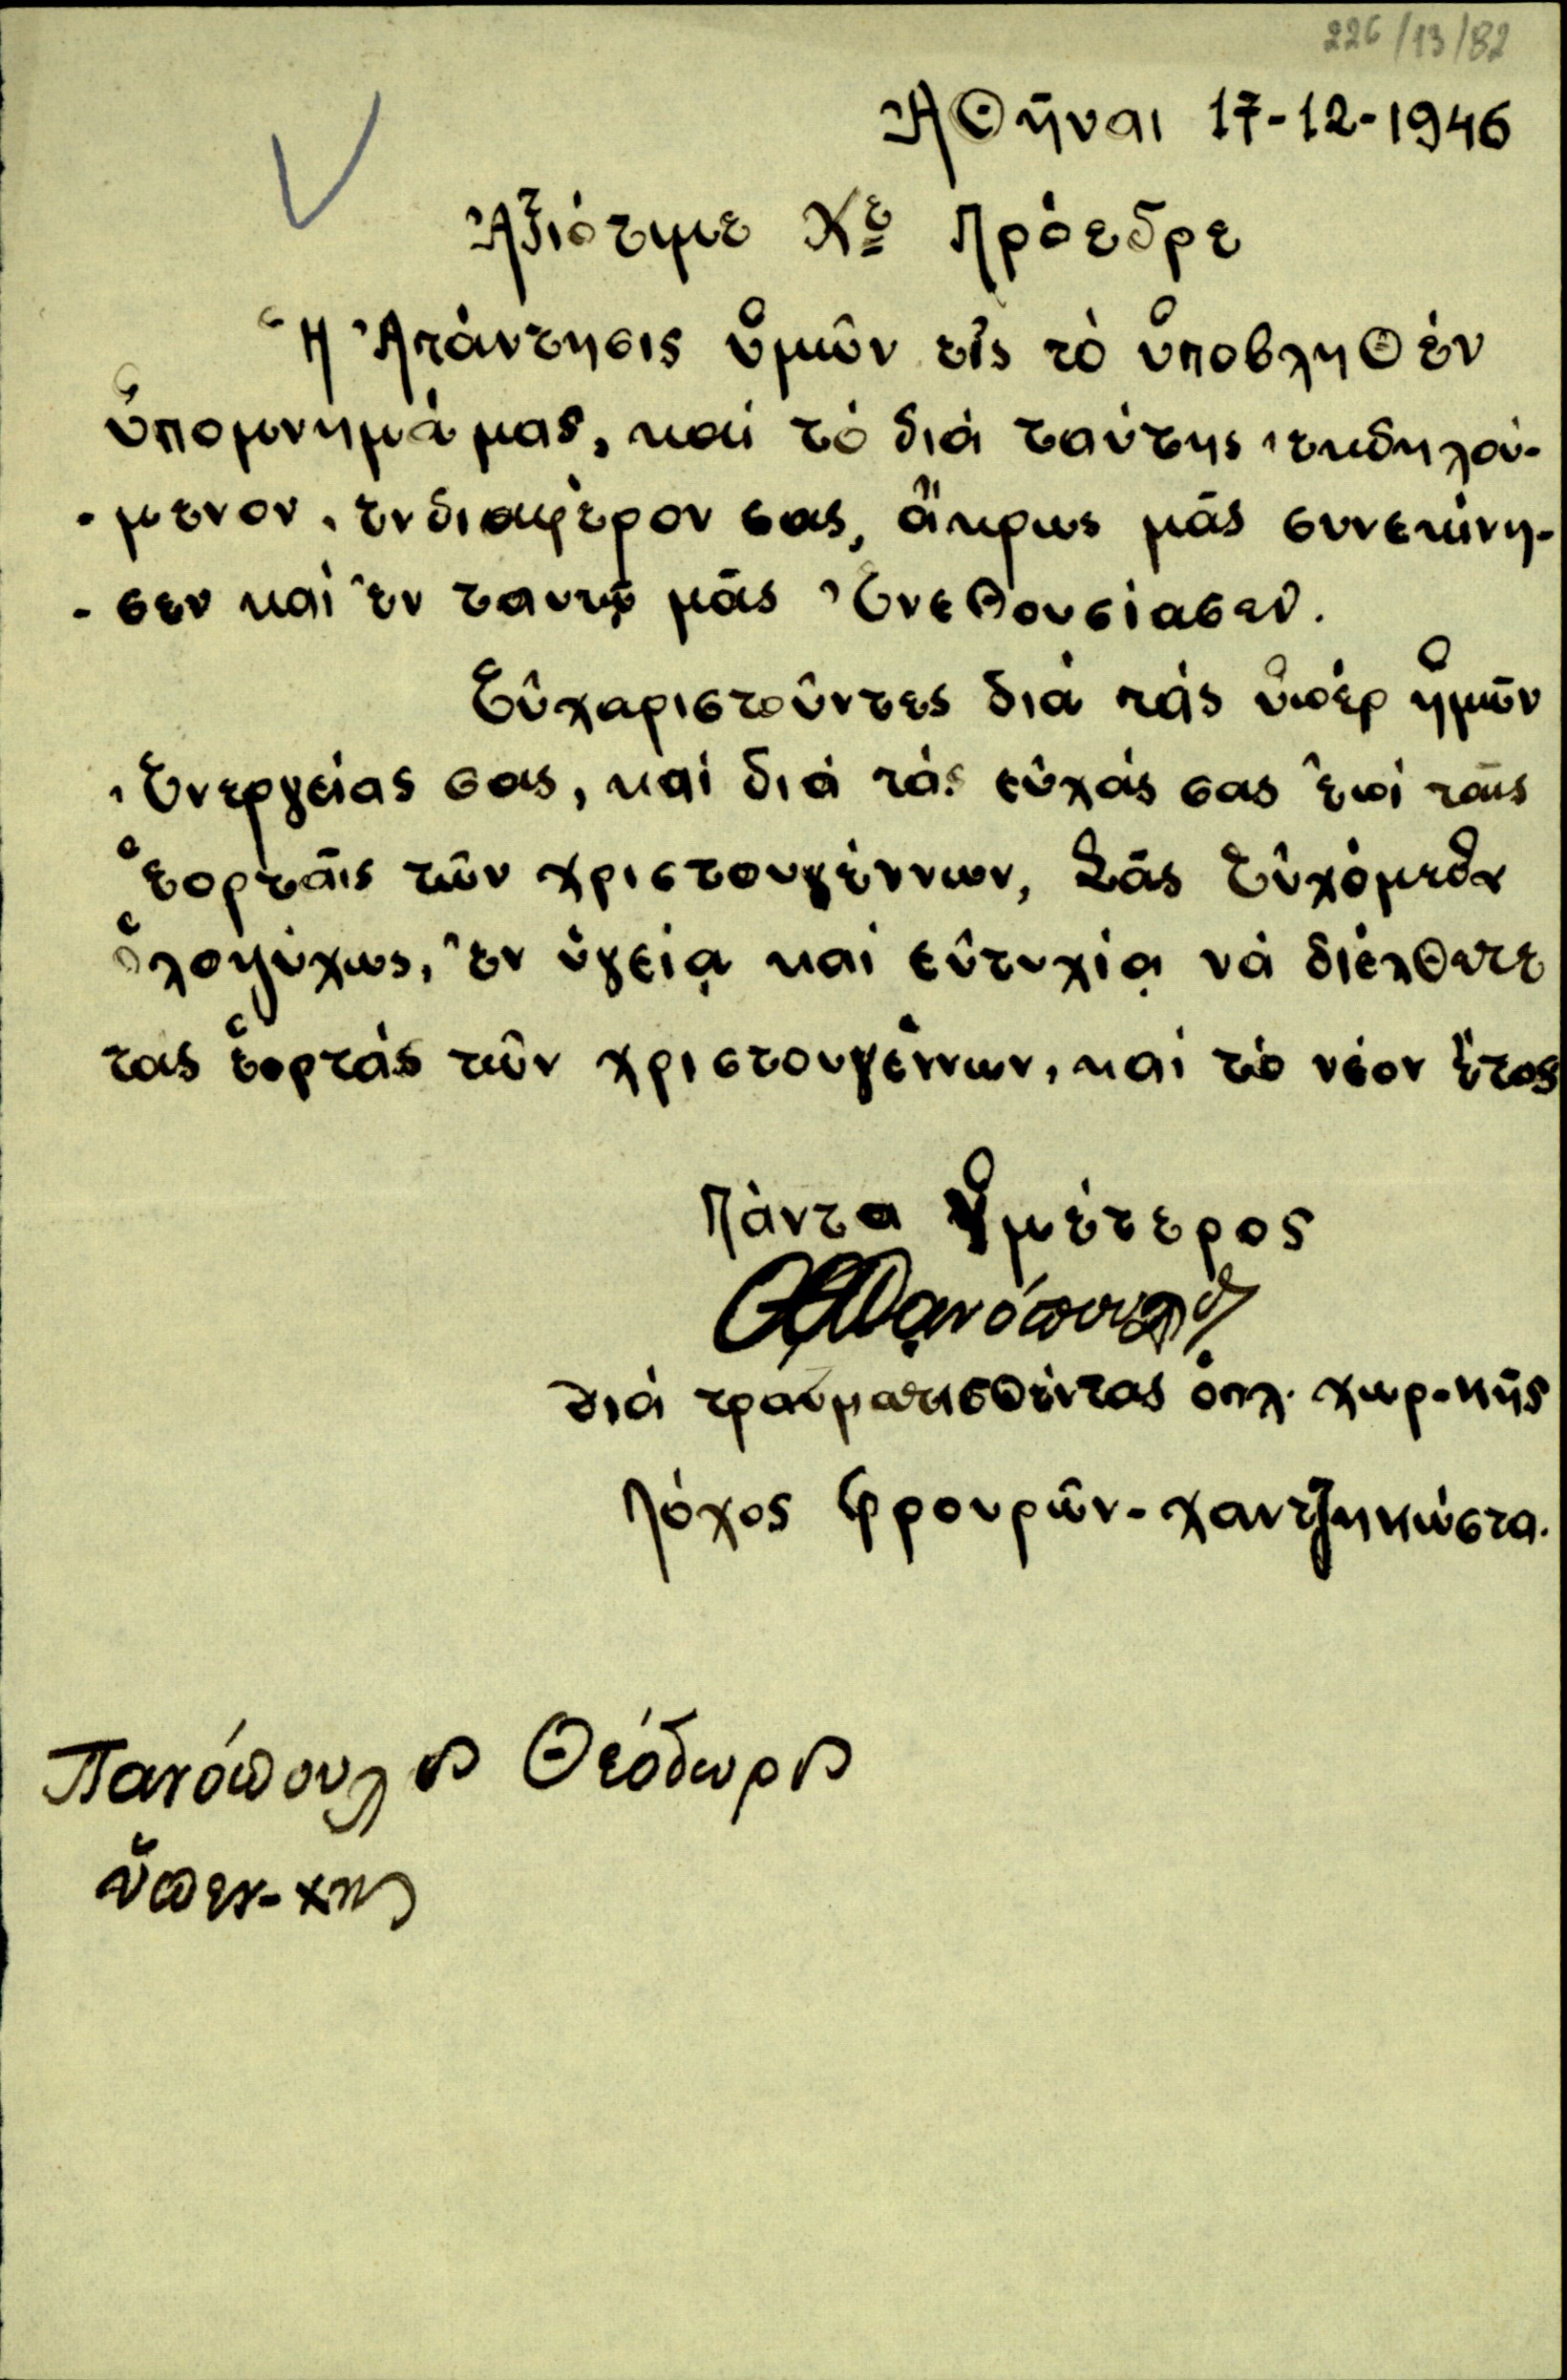 226/13/82
Ἀθῆναι 17-12-1946
Ἀξιότιμε Κε Πρόεδρε
Ἡ Ἀπάντησις ὑμῶν εἰς τὸ ὑποβληθέν
ὑπομνημά μας, καί τό διά ταύτης ἐκδηλού-
-μενον ἐνδιαφέρον σας, ἄκρως μᾶς συνεκίνη-
-σεν καί ἐν ταυτῷ μᾶς Ἐνεθουσίασεν.
Εὐχαριστοῦντες διά τάς ὑπέρ ἡμῶν
Ἐνεργείας σας, καί διά τάς εὐχάς σας ἐπί ταῖς
ἑορταῖς τῶν χριστουγέννων, Σᾶς Εὐχόμεθα
ὁλοψύχως, ἐν ὑγείᾳ καί εὐτυχίᾳ νά διέλθετε
τας ἑορτάς τῶν χριστουγέννων, καί τό νέον ἔτος
Πάντα Ὑμέτερος
Θ Πανόπουλος
διά τραυματισθέντας ὁπλ. χωρ-κῆς
Λόχος Φρουρῶν-χαντζηκώστα.
Πανόπουλος Θεόδωρος
ὑπεν-χης